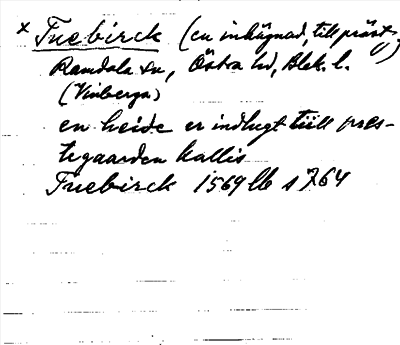 x Tuebirck (en inhägnad, till präst-
g)
Ramdala sn, Östra hd, Blek. l.
(Vinberga)
en heide er indlugt tiill pres-
tegaarden kallis
Tuebirck 1569 lb s 764